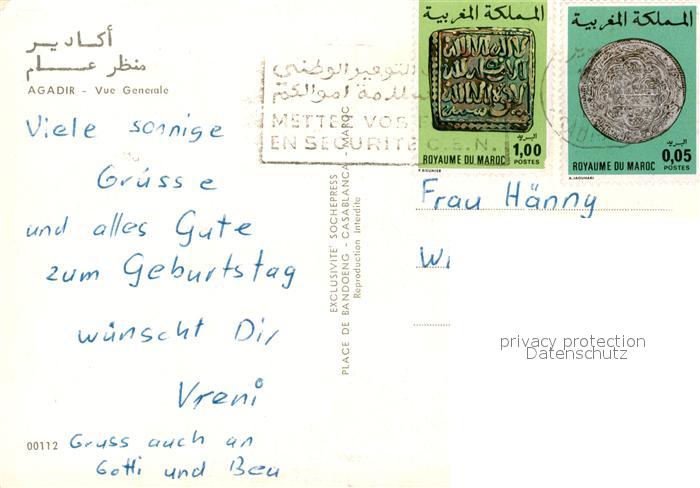 أكادير
منظر عام
AGADIR - Vue Generale
Viele sonnige
Grüsse
und alles Gute
zum Geburtstag
wünscht Dir
Vreni
00112
Gruss auch an
Gotti und Beu
EXCLUSIVITÉ SOCHEPRESS
PLACE DE BANDOENG - CASABLANCA - MAROC
Reproduction Interdite
التوفير الوطني
METTEZ VOS
EN SECURITE C.E.N.
المملكة المغربية
البريد
1,00
POSTES
ROYAUME DU MAROC
المملكة المغربية
البريد
0,05
POSTES
ROYAUME DU MAROC
A. JAOUHARI
Frau Hänny
privacy protection
Datenschutz